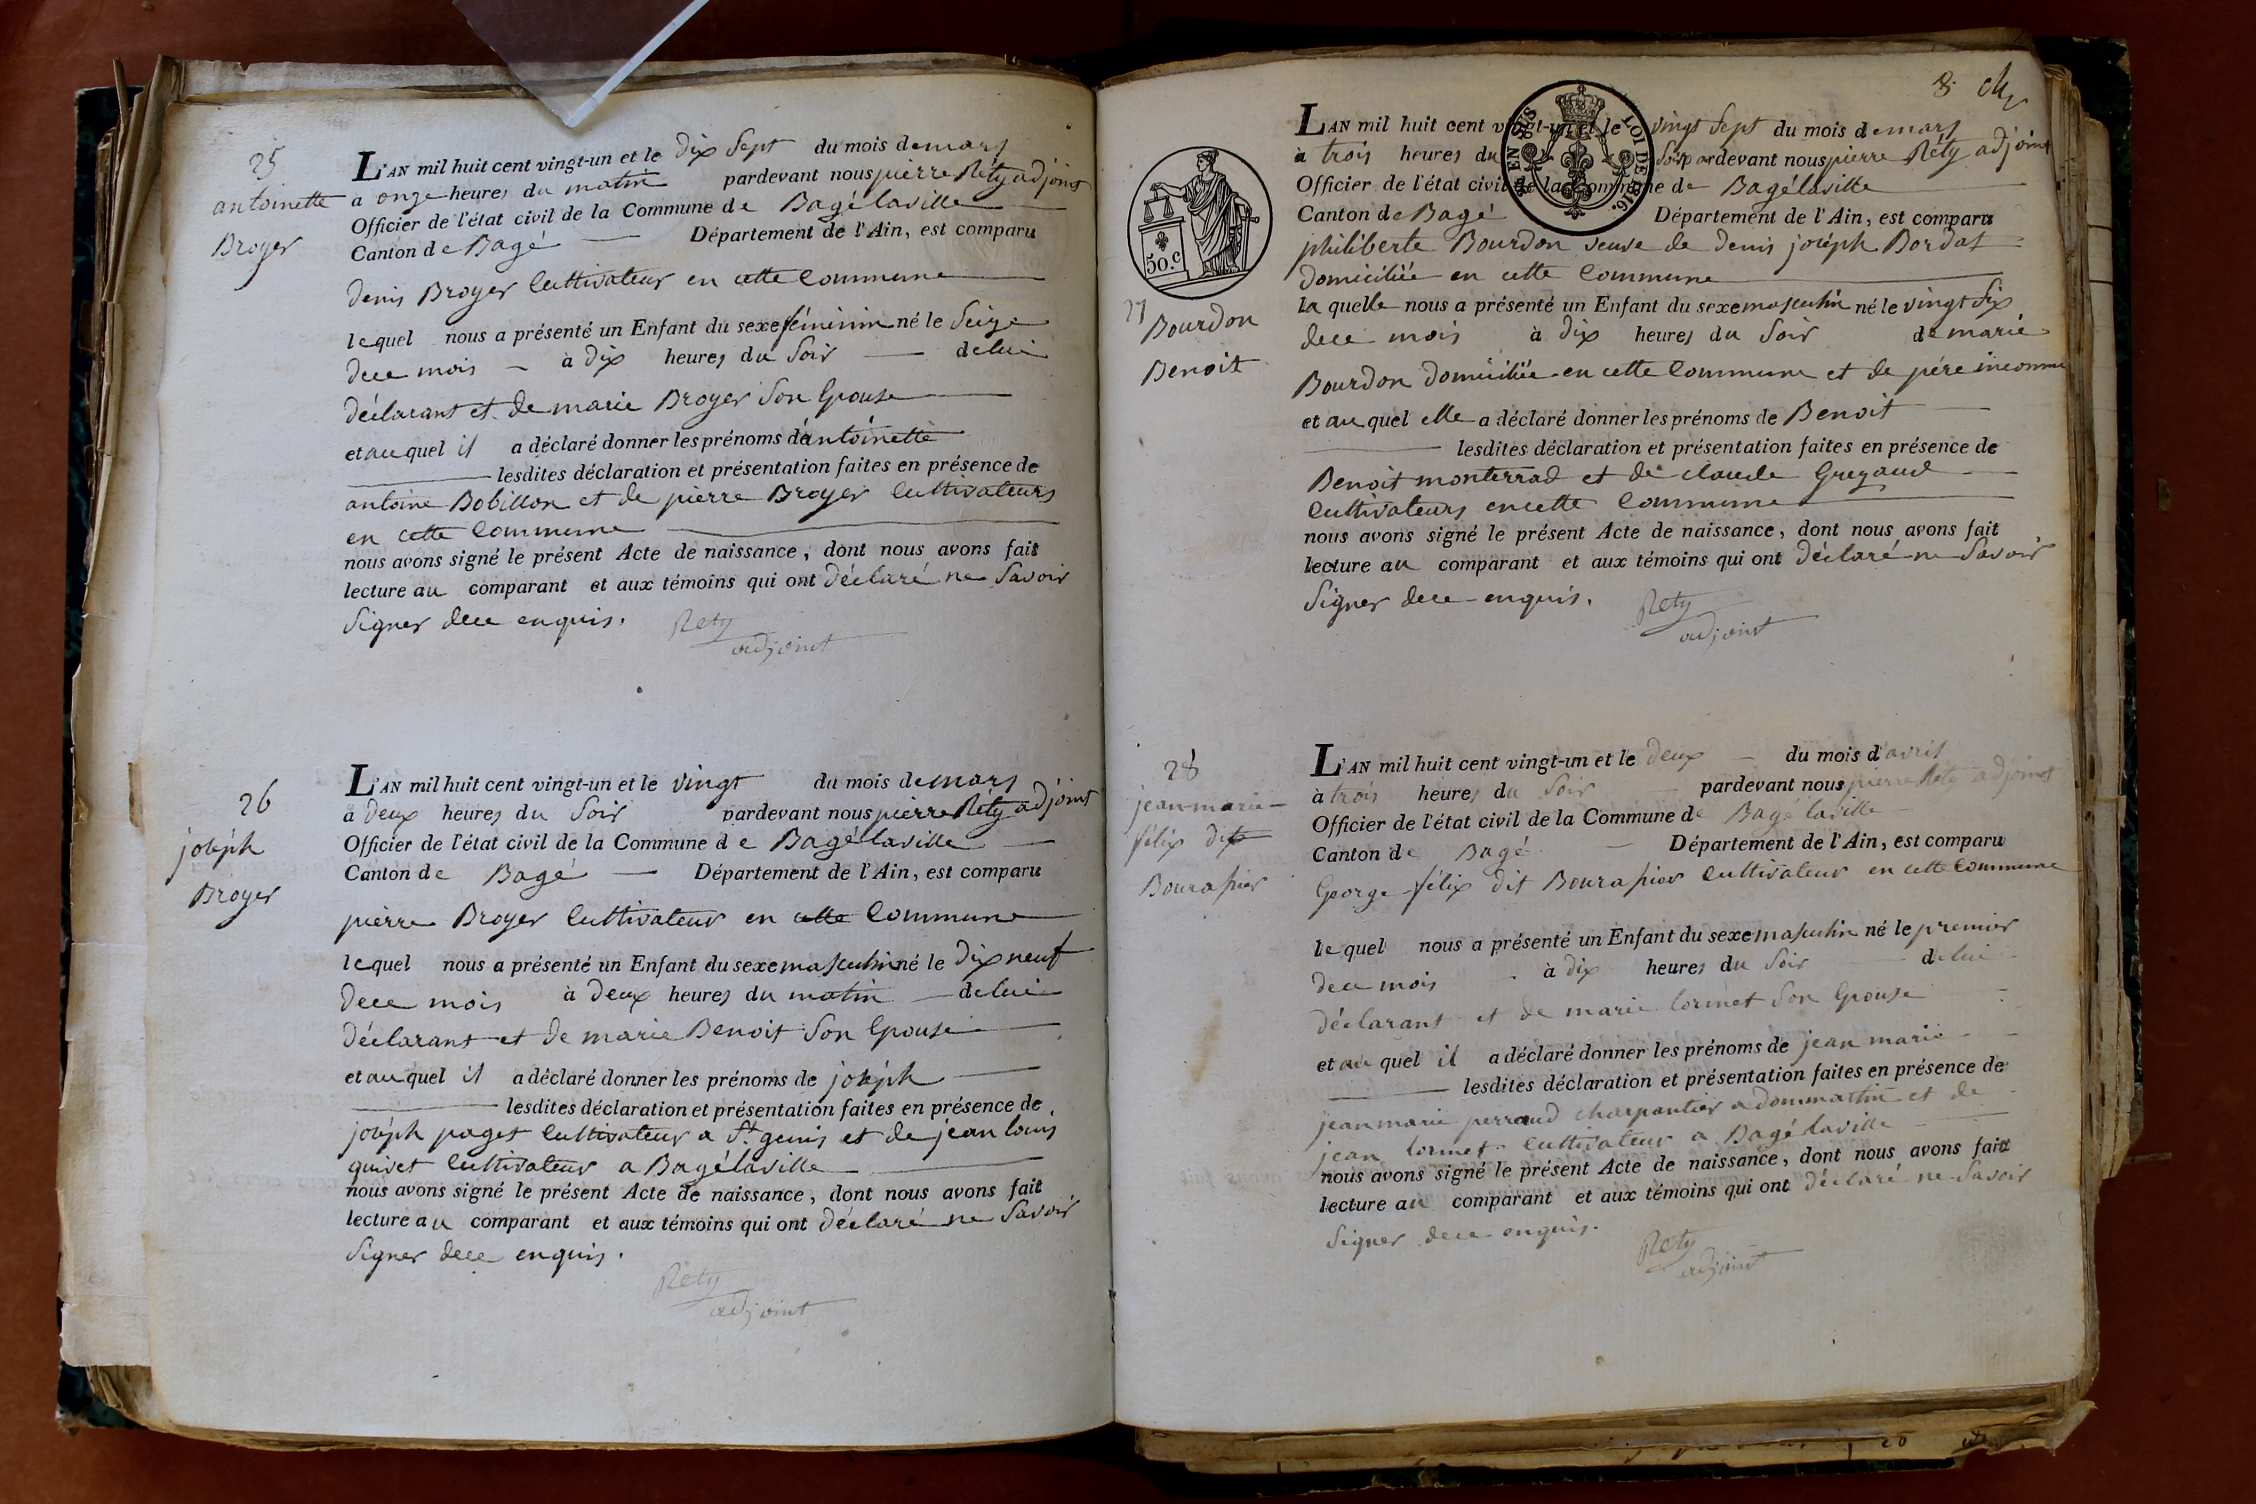 25
antoinette
Broyer
L'AN mil huit cent vingt-un et le dix Sept du mois de mars
a onze heures du matin pardevant nous pierre Réty adjoint
Officier de l'état civil de la Commune de Bagélaville
Canton de Bagé Département de l'Ain, est comparu
denis Broyer Cultivateur en cette Commune
lequel nous a présenté un Enfant du sexe féminin né le Seize
dece mois à dix heures du Soir de lui
déclarant et de marie Broyer Son Epouse
et au quel il a déclaré donner les prénoms d'antoinette
lesdites déclaration et présentation faites en présence de
antoine Bobillon et de pierre Broyer Cultivateurs
en cette Commune
nous avons signé le présent Acte de naissance, dont nous avons fait
lecture au comparant et aux témoins qui ont déclaré ne Savoir
Signer dece enquis.
Rety
adjoint
26
joséph
Broyer
L'AN mil huit cent vingt-un et le vingt du mois de mars
à deux heures du Soir pardevant nous pierre Réty adjoint
Officier de l'état civil de la Commune de Bagélaville
Canton de Bagé Département de l'Ain, est comparu
pierre Broyer Cultivateur en cette Commune
lequel nous a présenté un Enfant du sexe masculin né le dix neuf
dece mois à deux heures du matin de lui
déclarant et de marie Benoit Son Epouse
et au quel il a déclaré donner les prénoms de joséph
lesdites déclaration et présentation faites en présence de
joséph paget Cultivateur a St genis et de jean louis
quivet Cultivateur a Bagélaville
nous avons signé le présent Acte de naissance, dont nous avons fait
lecture au comparant et aux témoins qui ont déclaré ne Savoir
Signer dece enquis.
Rety
adjoint
8.
EN SUS
LOI DE 1816.
50.c
27
Bourdon
Benoit
L'AN mil huit cent vingt-un et le vingt Sept du mois de mars
à trois heures du Soir pardevant nous pierre Réty adjoint
Officier de l'état civil de la Commune de Bagélaville
Canton de Bagé Département de l'Ain, est comparu
philiberte Bourdon veuve de denis joséph Bordat
domiciliée en cette Commune
la quelle nous a présenté un Enfant du sexe masculin né le vingt Six
dece mois à dix heures du Soir de marie
Bourdon domiciliée en cette Commune et de pére inconnu
et au quel elle a déclaré donner les prénoms de Benoit
lesdites déclaration et présentation faites en présence de
Benoit monterrad et de claude Guyaud
Cultivateurs en cette Commune
nous avons signé le présent Acte de naissance, dont nous avons fait
lecture au comparant et aux témoins qui ont déclaré ne Savoir
Signer dece enquis.
Rety
adjoint
28
jean-marie
félix dit
Bourasier
L'AN mil huit cent vingt-un et le deux du mois d'avril
à trois heures du Soir pardevant nous pierre Réty adjoint
Officier de l'état civil de la Commune de Bagé laville
Canton de Bagé Département de l'Ain, est comparu
George félix dit Bourasier Cultivateur en cette Commune
lequel nous a présenté un Enfant du sexe masculin né le premier
dece mois à dix heures du Soir de lui
déclarant et de marie lormet Son Epouse
et au quel il a déclaré donner les prénoms de jean marie
lesdites déclaration et présentation faites en présence de
jean marie perraud charpantier a dommartin et de
jean lormet Cultivateur a Bagélaville
nous avons signé le présent Acte de naissance, dont nous avons fait
lecture au comparant et aux témoins qui ont déclaré ne Savoir
Signer dece enquis.
Rety
adjoint
20